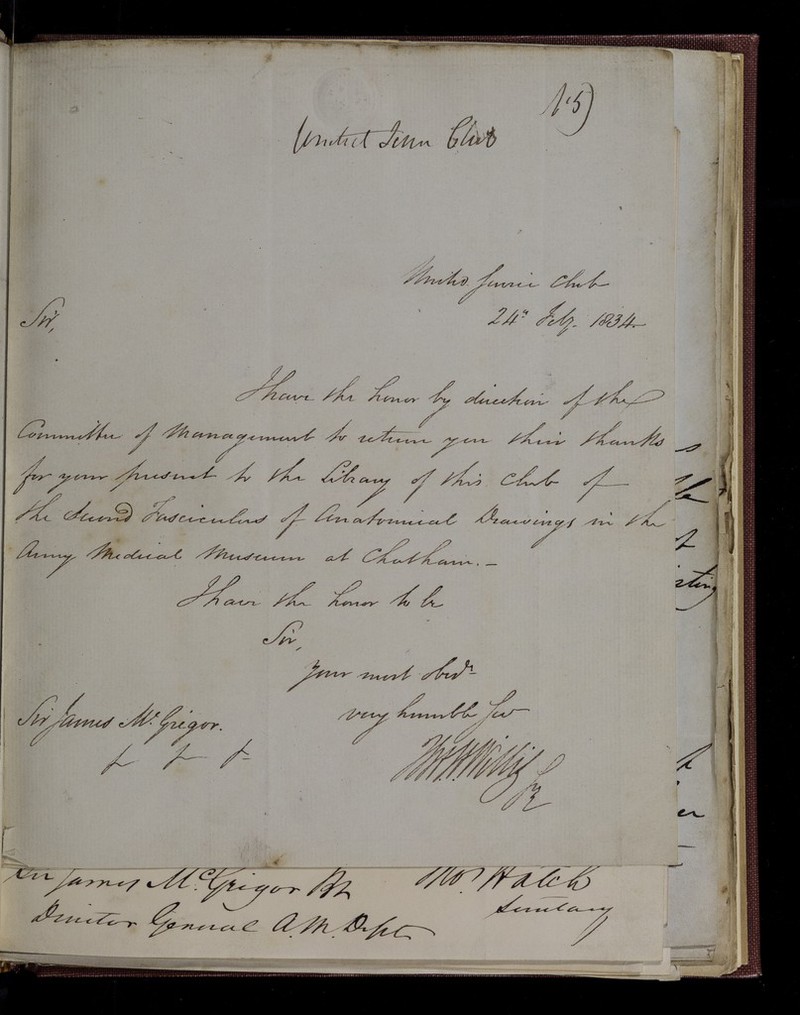 15)
United Serv Club
United Service Club
24th Feby. 1834
Sir,
I have the honor by direction of the
Committee of Management to return you their thanks
for your present to the Library of this Club of
the Second Fasciculus of Anatomical Drawings in the
Army Medical Museum at Chatham. –
I have the honor to be
Sir,
Your most obedt
very humble Serv
Sir James McGrigor.
Sir James McGrigor Bt
Thos Hatch
Secretary
Director General A.M. Dept